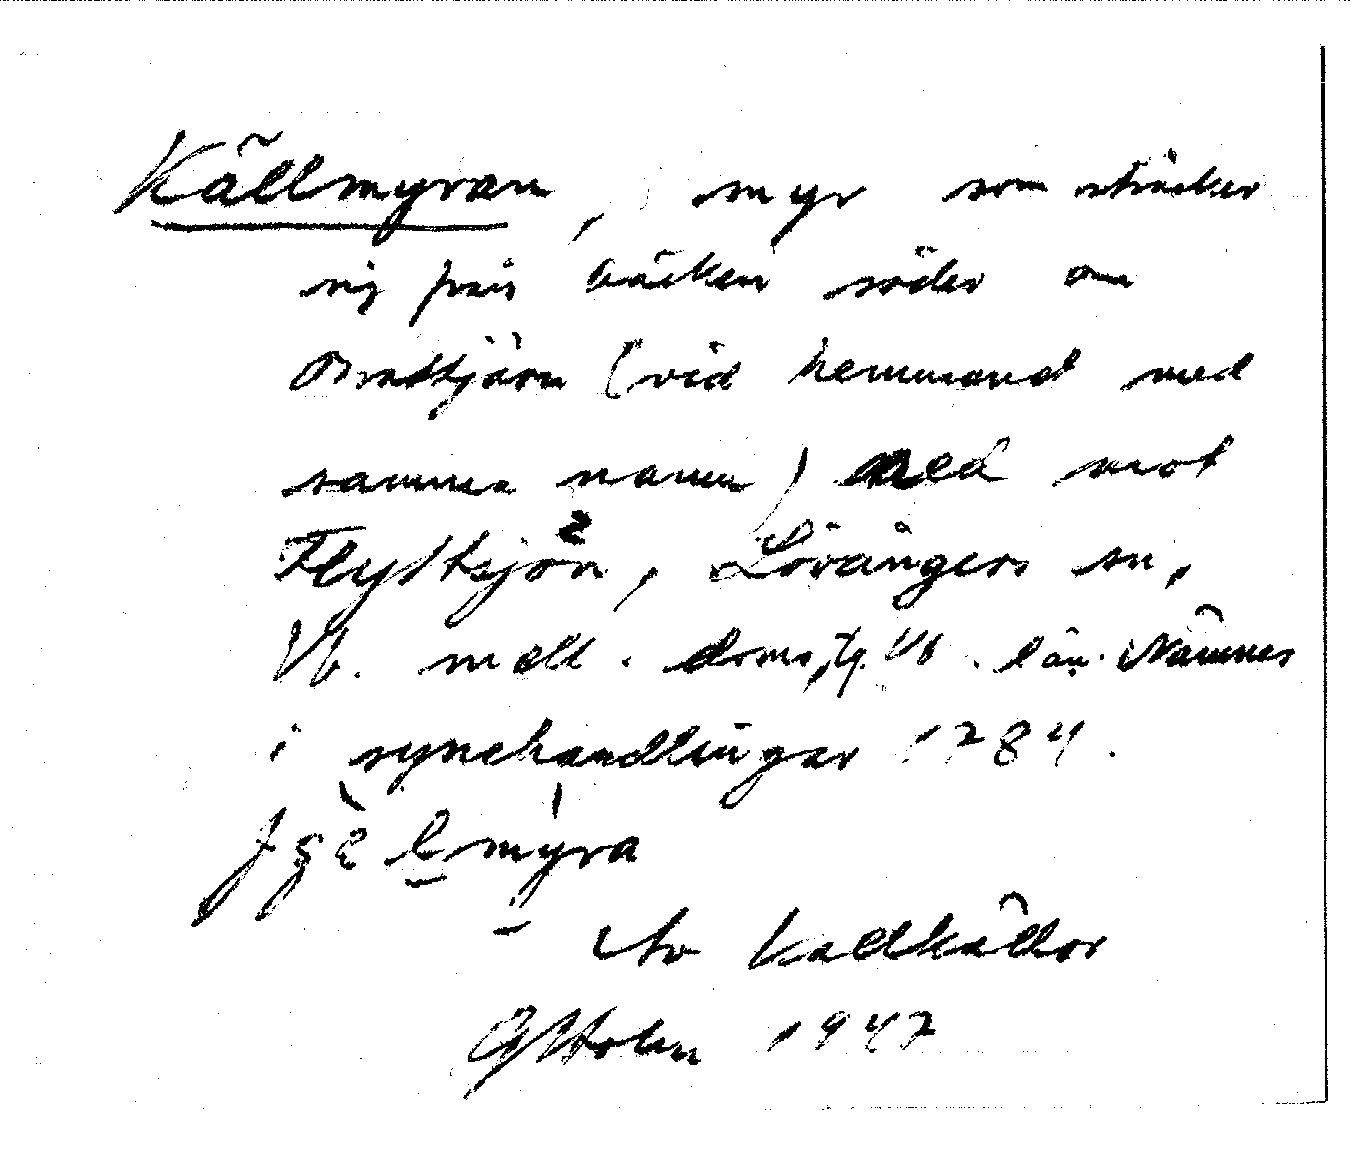 Källmyran, myr som sträcker
sig från bäcken söder om
Bratttjärn (vid hemmand med
samma namn) ned mot
Flyttsjön, Lövångers sn,
Vb. mell. doms,tg. Vb. län. Nämnes
i synehandlingar 1784.
myra
Av Kallkällor
Holm 1947